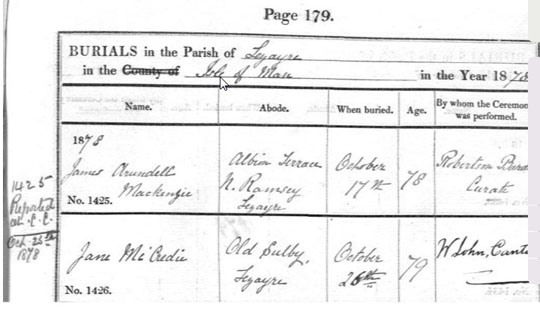 Page 179.
BURIALS in the Parish of Lezayre
in the County of Isle of Man in the Year 1878
Name. Abode. When buried. Age. By whom the Ceremon
was performed.
1878
James Arundell
Mackenzie
No. 1425.
Albion Terrace
N. Ramsey
Lezayre
October
17th
78
Robertson
Curate
1425
Reported
at C.C.
Oct 25th
1878
Jane McCredie
No. 1426.
Old Sulby,
Lezayre
October
26th
79